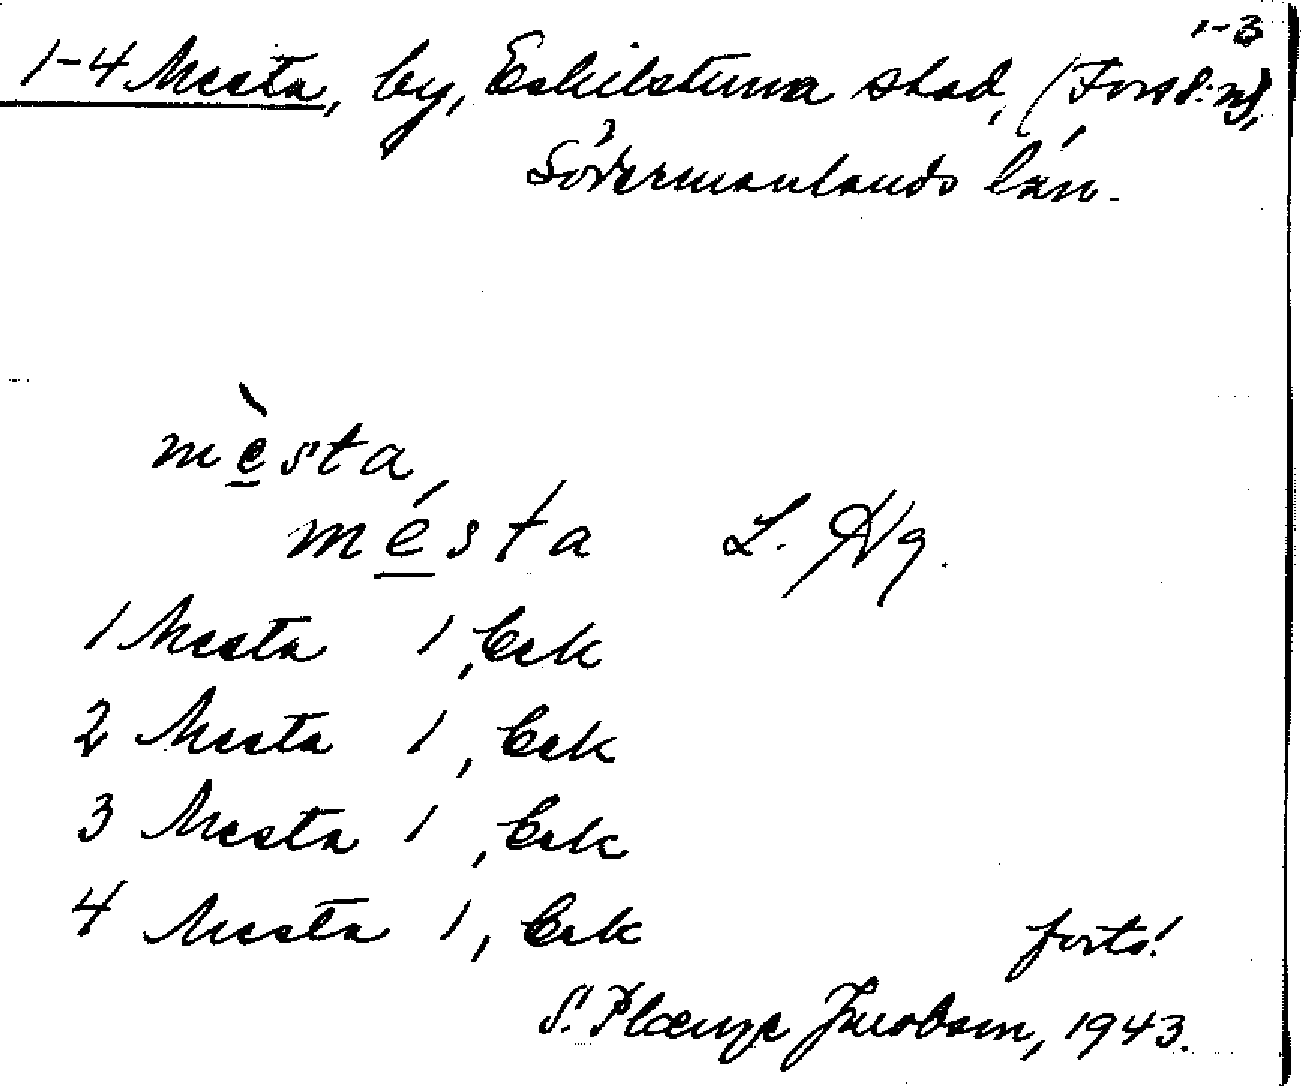 1-3
1-4 Mesta, by, Eskilstuna stad, (Fors s:n),
Södermanlands län.
mèsta,
mésta L. Hg.
1 Mesta 1, Esk
2 Mesta 1, Esk
3 Mesta 1, Esk
4 Mesta 1, Esk
forts!
S. Plænge Jacobson, 1943.